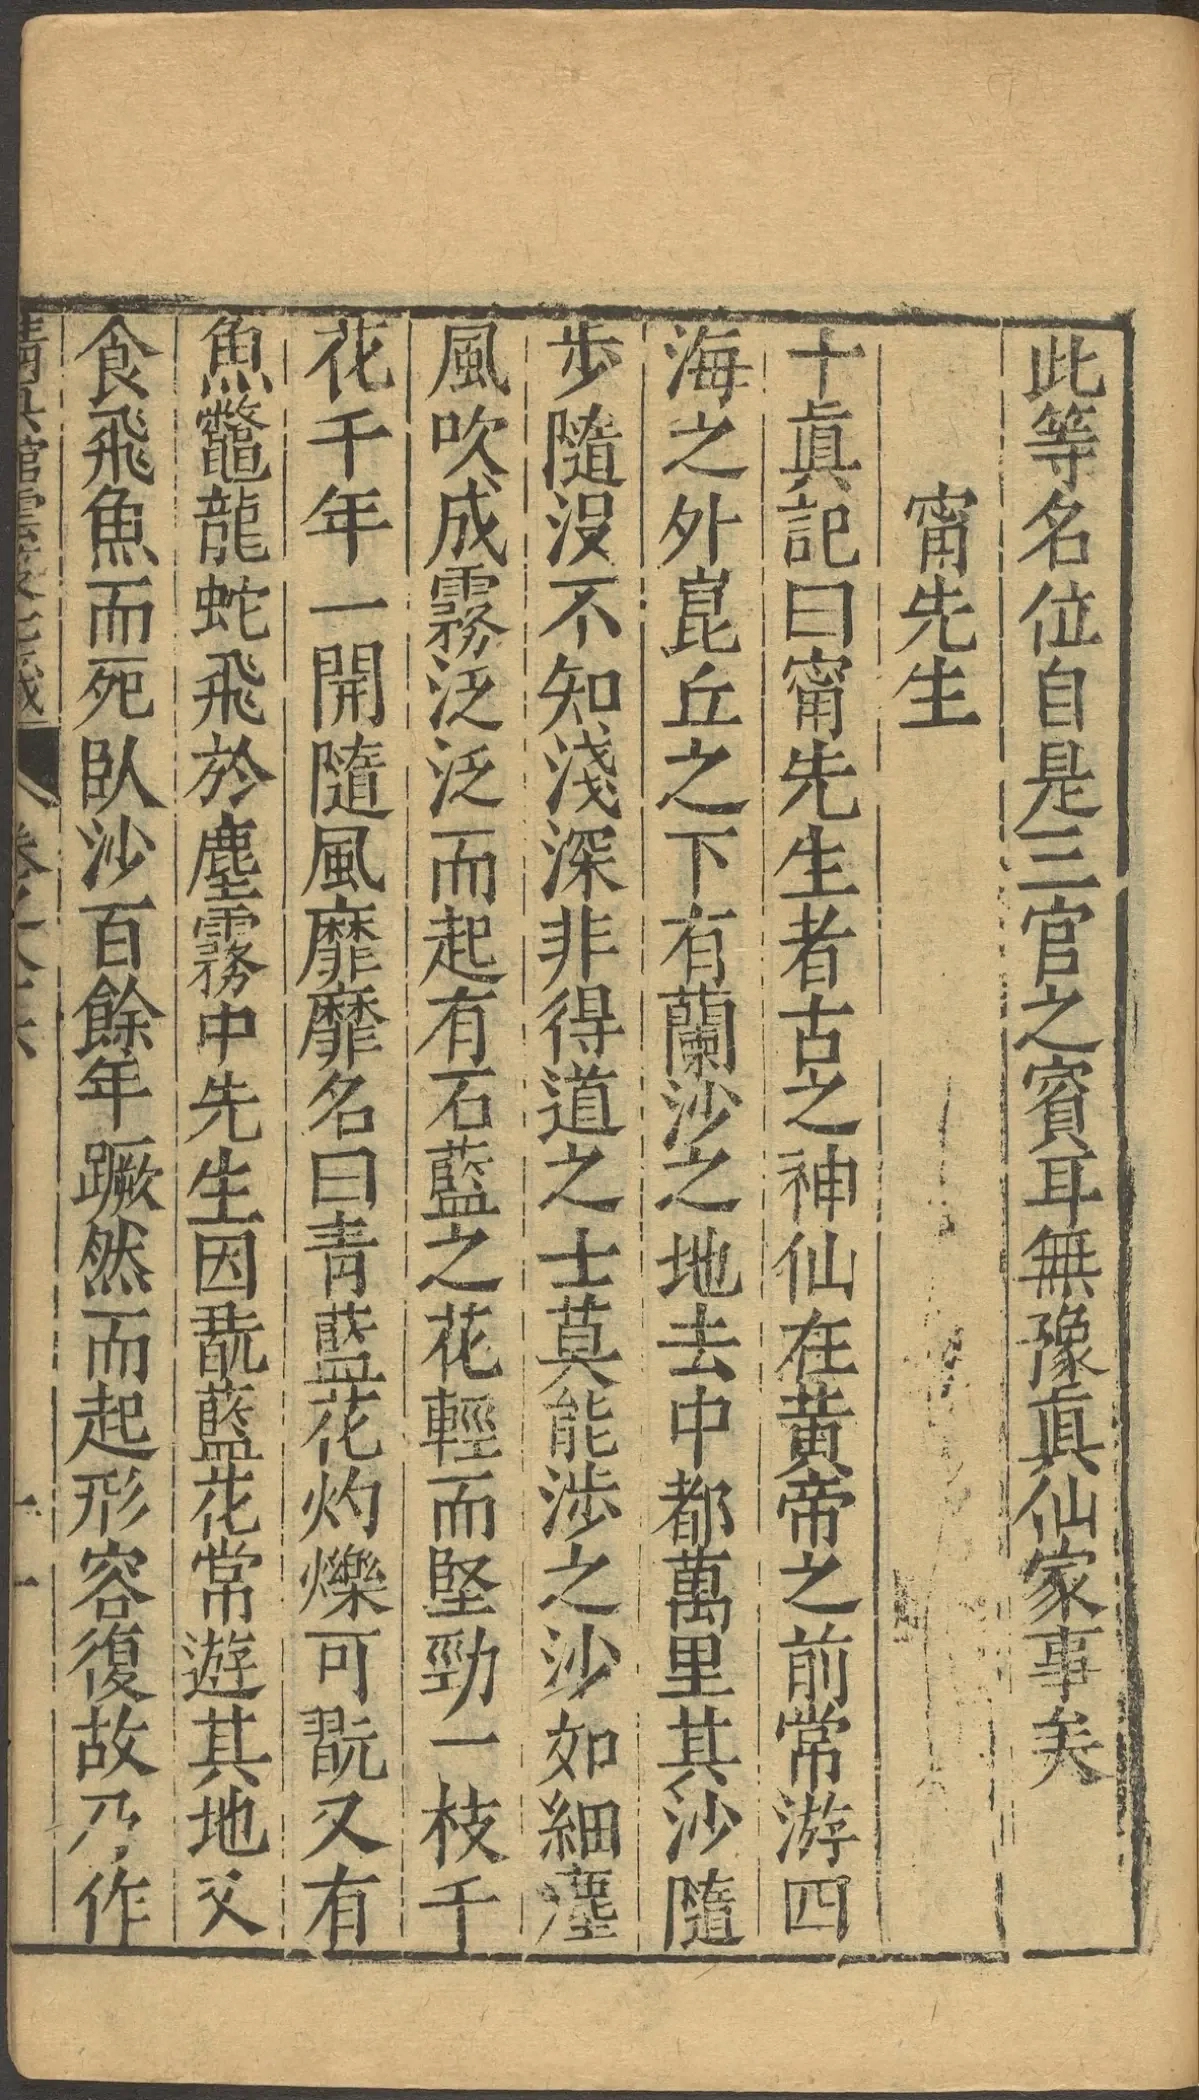 此等名位自是三官之賓耳無豫眞仙家事矣
甯先生
十眞記曰甯先生者古之神仙在黃帝之前常游四
海之外崑丘之下有蘭沙之地去中都萬里其沙隨
步隨沒不知淺深非得道之士莫能涉之沙如細塵
風吹成霧泛泛而起有石藍之花輕而堅勁一枝千
花千年一開隨風靡靡名曰青藍花灼爍可翫又有
魚鼈龍蛇飛於塵霧中先生因翫藍花常遊其地父
食飛魚而死臥沙百餘年蹶然而起形容復故乃作